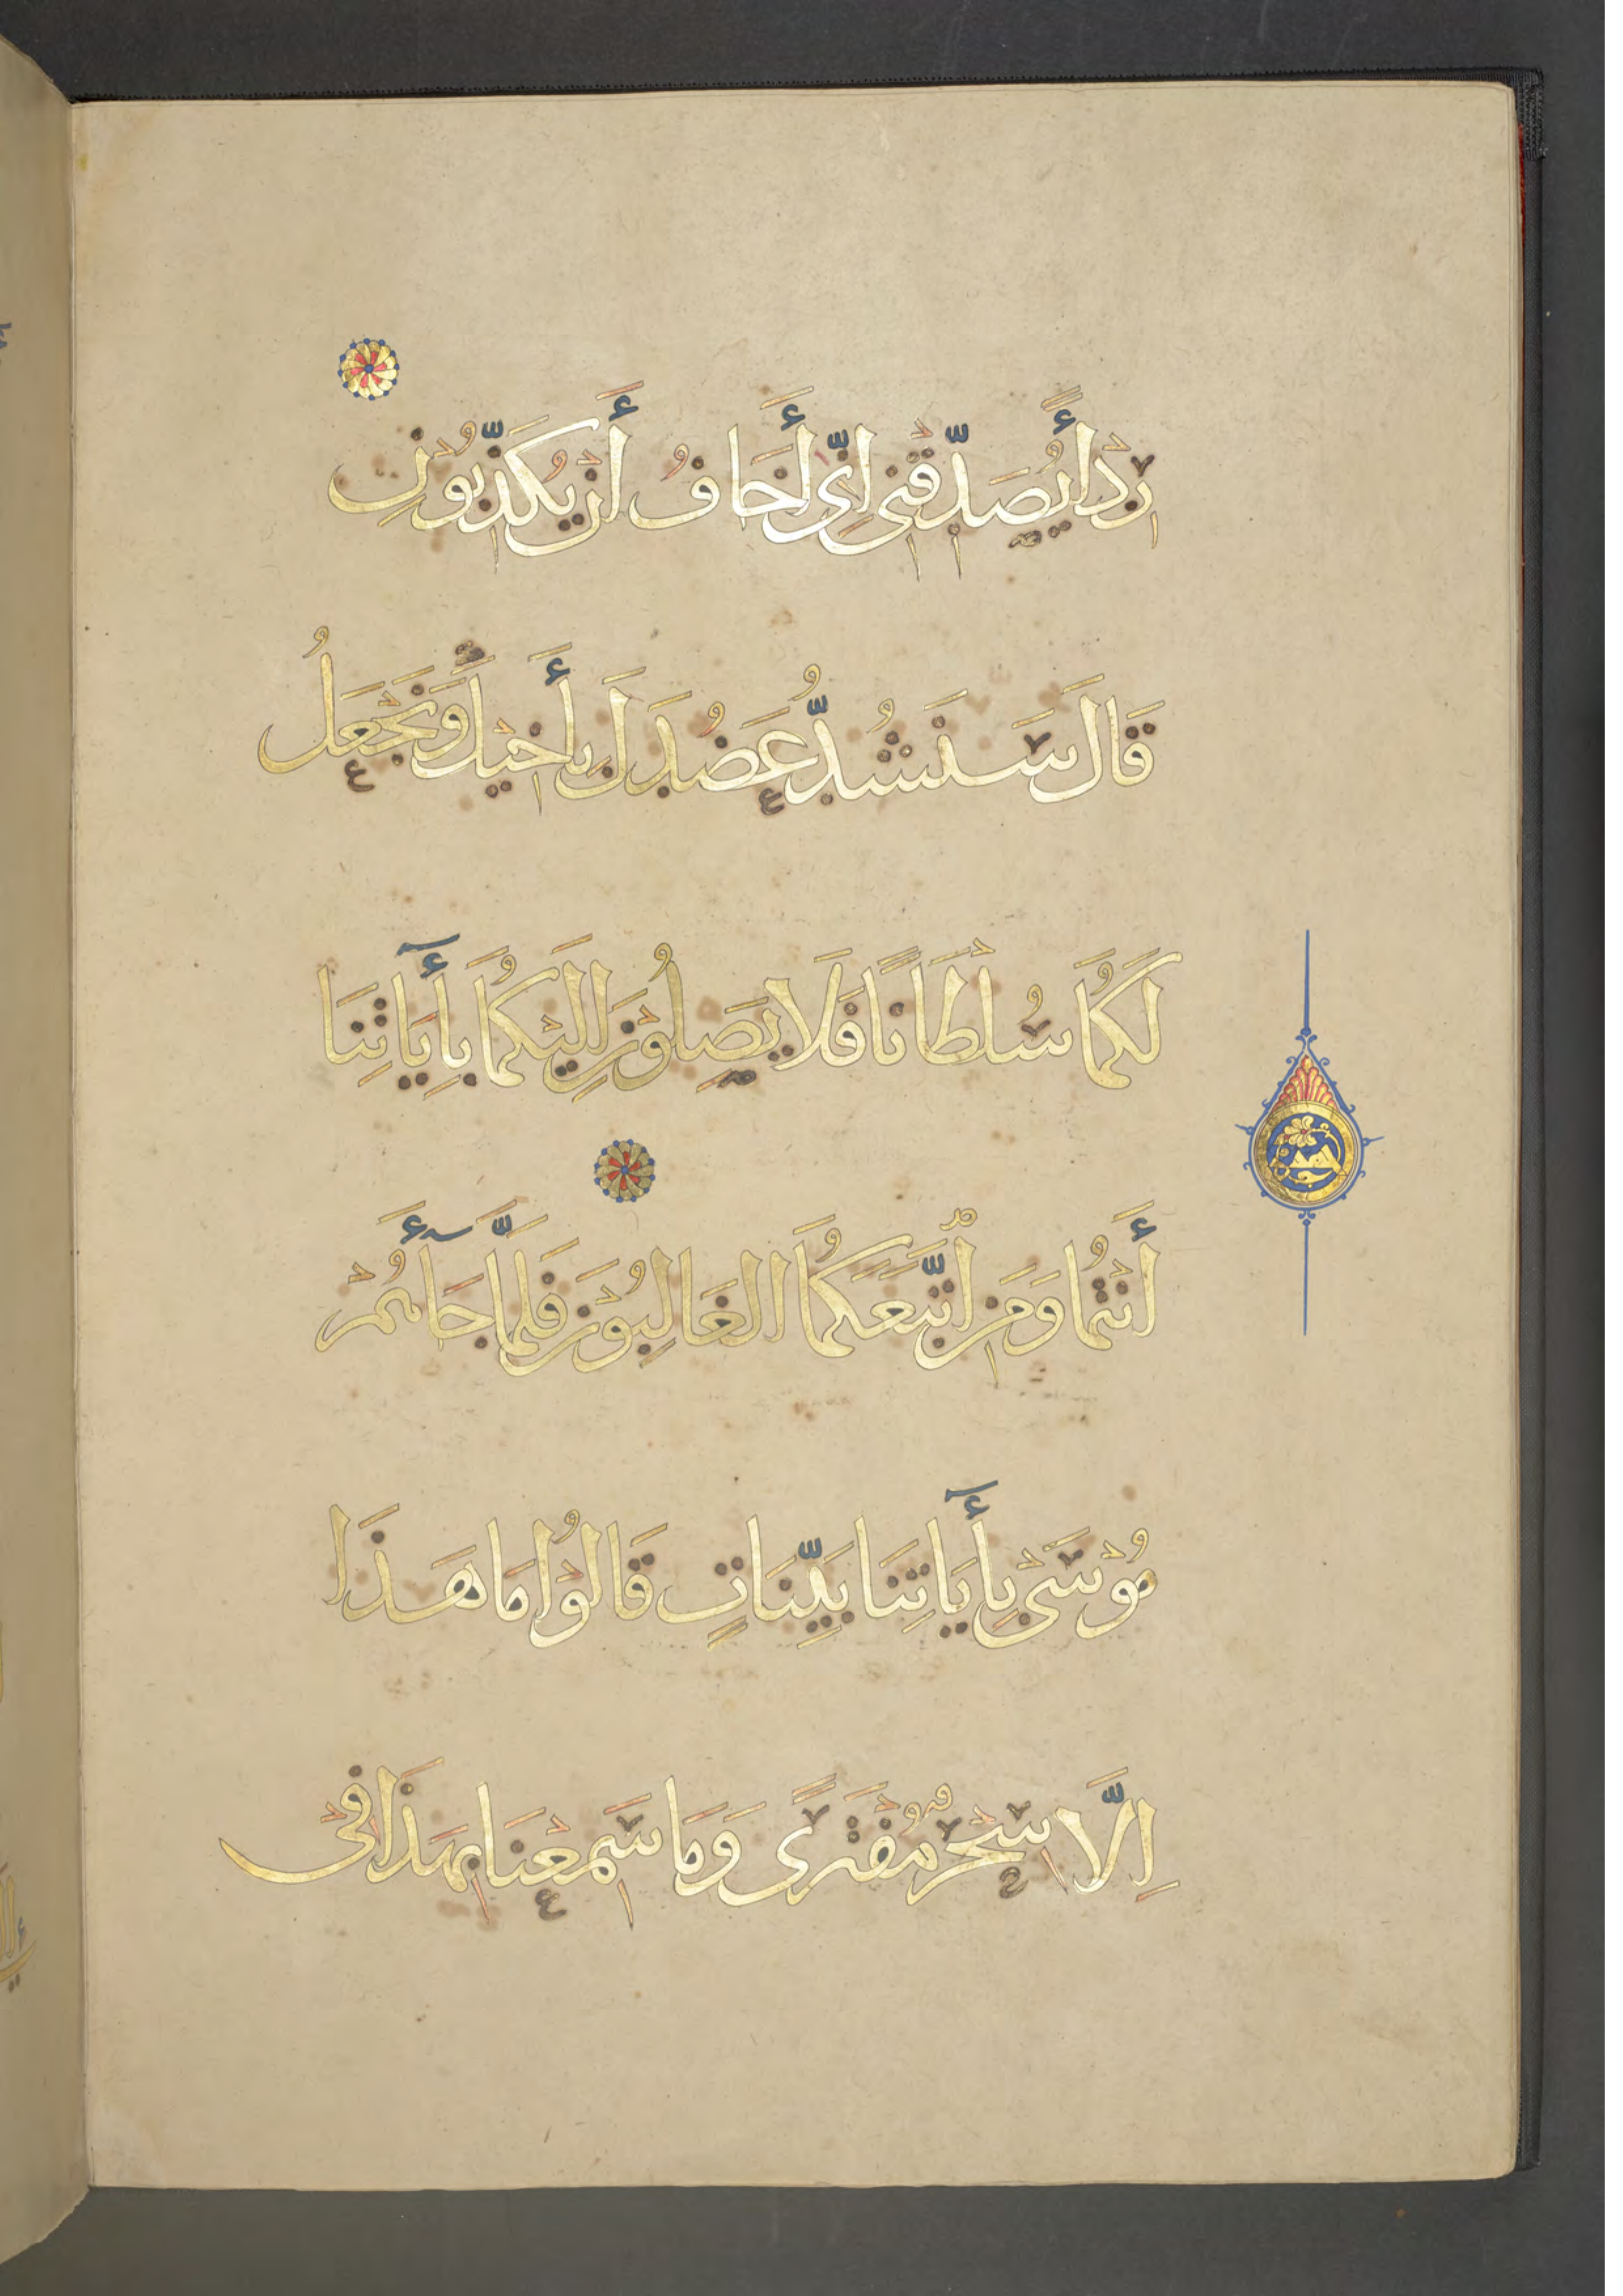 رِدْأً يُصَدِّقْنِى إِنِّى أَخَافُ أَنْ يُكَذِّبُونِ
قَالَ سَنَشُدُّ عَضُدَكَ بِأَخِيكَ وَنَجْعَلُ
لَكُمَا سُلْطَانًا فَلَا يَصِلُونَ إِلَيْكُمَا بِأَيَاتِنَا
أَنْتُمَا وَمَنِ اتَّبَعَكُمَا الْغَالِبُونَ فَلَمَّا جَآءَهُمْ
مُوْسَىْ بِأَيَاتِنَا بَيِّنَاتٍ قَالُوْا مَا هَذَا
إِلَّا سِحْرٌ مُفْتَرًى وَمَا سَمِعْنَا بِهَذَا فِىْ